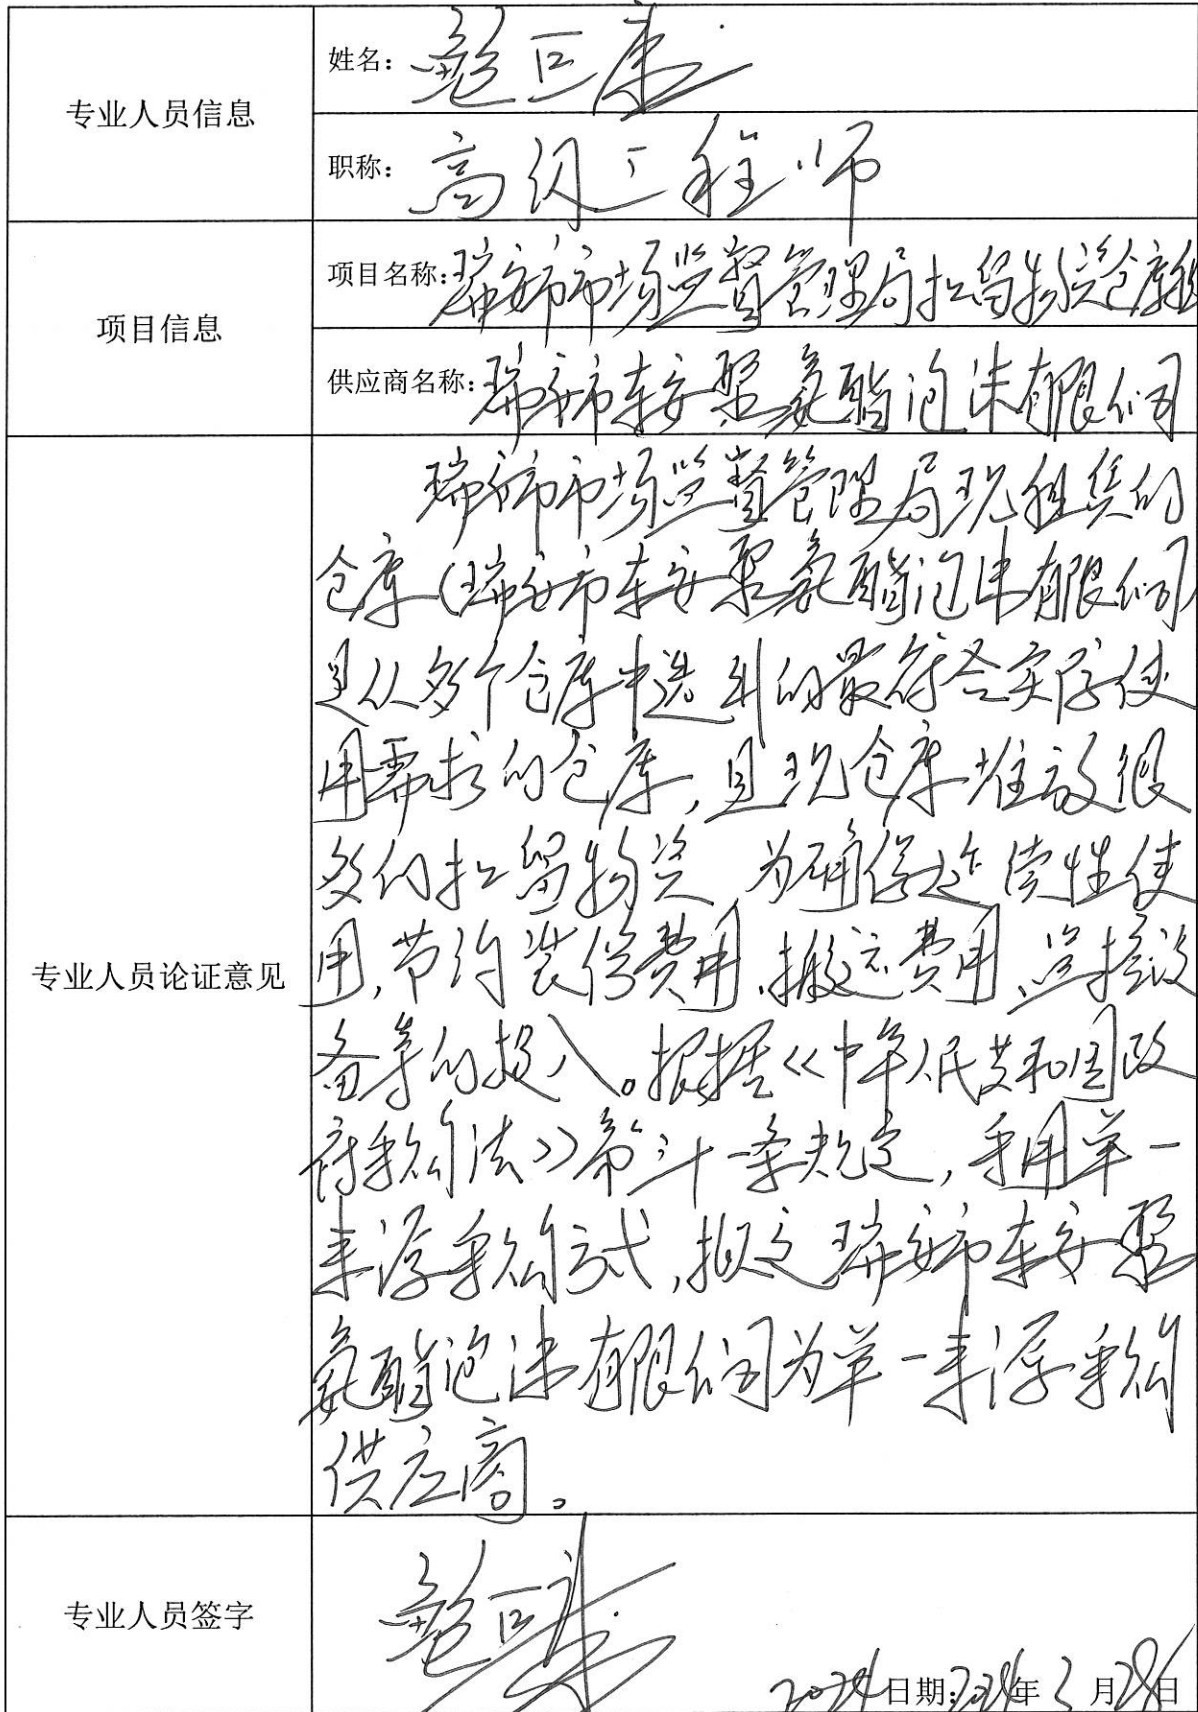 专业人员信息
姓名：鲍巨康
职称：高级工程师
项目信息
项目名称：瑞安市市场监督管理局扣留物资仓库租
供应商名称：瑞安市东安聚氨酯泡沫有限公司
专业人员论证意见
瑞安市市场监督管理局现租赁的
仓库(瑞安市东安聚氨酯泡沫有限公司)
是从多个仓库中选到的最符合实际使
用需求的仓库,且现仓库堆放很
多的扣留物资 为确保延续性使
用,节约装修费用、搬运费用、监控设
备等的投入。根据《中华人民共和国政
府采购法》第三十一条规定,采用单一
来源采购方式,拟定瑞安市东安聚
氨酯泡沫有限公司为单一来源采购
供应商。
专业人员签字
鲍巨康
2024 日期：2024年3月28日